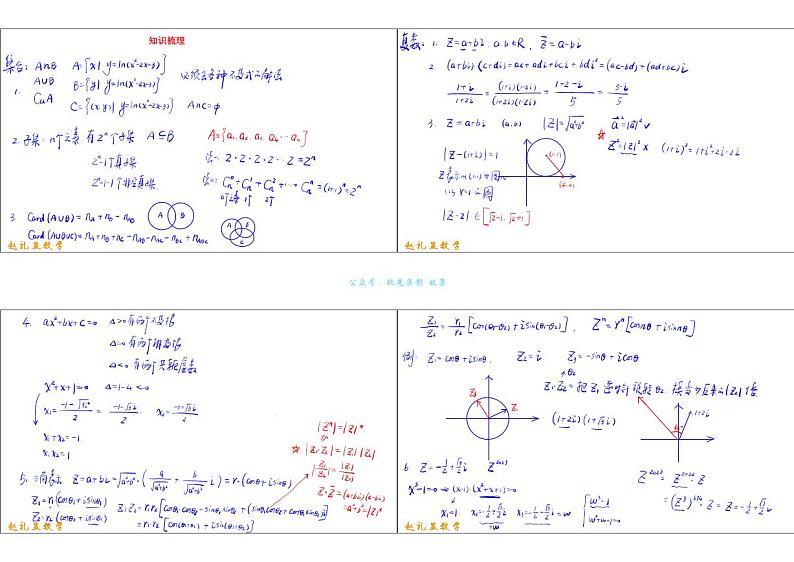 知识梳理
集合: A∩B A={x| y=ln(x²-2x-3)}
1. A∪B B={y| y=ln(x²-2x-3)} 必须会各种不等式的解法
CuA C={(x,y)| y=ln(x²-2x-3)} A∩C=φ
2. 子集: n个元素 有2ⁿ个子集 A⊆B A={a₁, a₂, a₃, a₄ ⋯ aₙ}
2ⁿ-1个真子集 法一: 2·2·2·2⋯2=2ⁿ
2ⁿ-1-1个非空真子集 法二: Cₙ⁰+Cₙ¹+Cₙ²+⋯+Cₙⁿ=(1+1)ⁿ=2ⁿ
3. Card(A∪B)=n_A+n_B-n_AB A B
Card(A∪B∪C)=n_A+n_B+n_C-n_AB-n_AC-n_BC+n_ABC A B C
赵礼显数学
复数: 1. Z=a+bi, a,b∈R, Z̄=a-bi
2. (a+bi)(c+di)=ac+adi+bci+bdi²=(ac-bd)+(ad+bc)i
(1+i)/(1+2i)=(1+i)(1-2i)/(1+2i)(1-2i)=(1+2-i)/5=(3-i)/5
3. Z=a+bi (a,b) |Z|=√(a²+b²) a⃗²=|a⃗|² √
☆ Z²=|Z|² × (1+i)²=1+i²+2i=2i
|Z-(1+i)|=1 (1,1)
(2,0)
|Z-2|∈[√2-1, √2+1]
赵礼显数学
公众号: 玖光柒影 收集
4. ax²+bx+c=0 Δ>0有两个不等实根
Δ=0有两个相等实根
Δ<0有两个共轭虚根
x²+x+1=0 Δ=1-4<0
x₁=(-1-√3i²)/2=(-1-√3i)/2 x₂=(-1+√3i)/2
x₁+x₂=-1
x₁x₂=1
|Zⁿ|=|Z|ⁿ
☆ |Z₁·Z₂|=|Z₁||Z₂|
|Z₁/Z₂|=|Z₁|/|Z₂|
Z·Z̄=(a+bi)(a-bi)
=a²+b²=|Z|²
5. 三角表示 Z=a+bi=√(a²+b²)·(a/√(a²+b²)+b/√(a²+b²) i)=r·(cosθ+isinθ)
Z₁=r₁(cosθ₁+isinθ₁) Z₁Z₂=r₁r₂[cosθ₁cosθ₂-sinθ₁sinθ₂+(sinθ₁cosθ₂+cosθ₁sinθ₂)i]
Z₂=r₂(cosθ₂+isinθ₂) =r₁·r₂[cos(θ₁+θ₂)+isin(θ₁+θ₂)]
赵礼显数学
Z₁/Z₂=r₁/r₂[cos(θ₁-θ₂)+isin(θ₁-θ₂)], Zⁿ=rⁿ[cosnθ+isinnθ]
例: Z₁=cosθ+isinθ, Z₂=i Z₃=-sinθ+icosθ
Z₃ Z₁
(1+2i)(1+√3i) 1+2i
6 Z=-1/2+√3/2 i Z²⁰²³ Z²⁰²³=Z²⁰²²·Z
x³-1=0 ⇒ (x-1)(x²+x+1)=0
x₁=1 x₂=-1/2-√3/2 i x₃=-1/2+√3/2 i=w
w³=1
w²+w+1=0
赵礼显数学